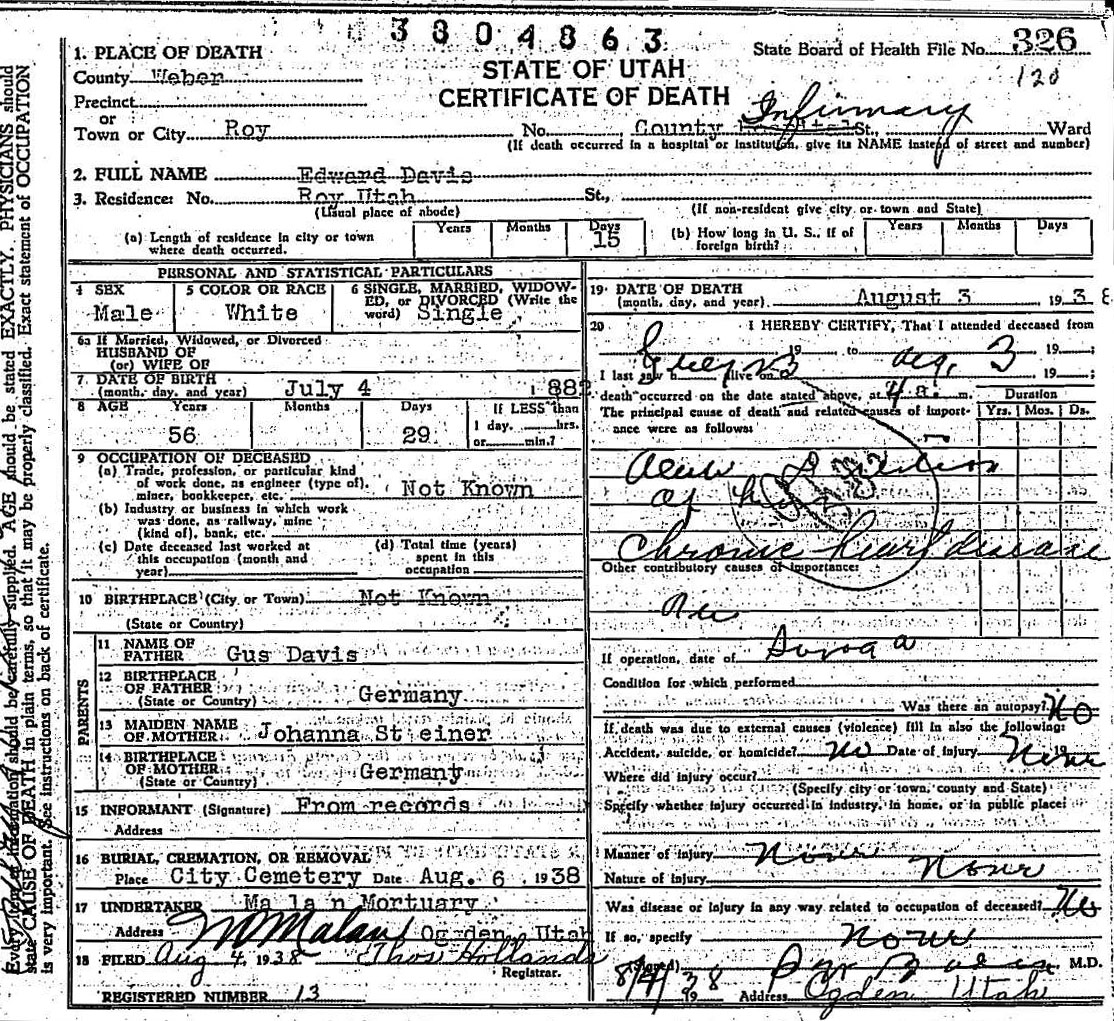 3804863
State Board of Health File No. 326
120
1. PLACE OF DEATH
County Weber
STATE OF UTAH
CERTIFICATE OF DEATH
Precinct
or
Town or City Roy No. County Hospital Infirmary St., Ward
(If death occurred in a hospital or institution, give its NAME instead of street and number)
2. FULL NAME Edward Davis
3. Residence: No. Roy Utah St.,
(Usual place of abode) (If non-resident give city or town and State)
(a) Length of residence in city or town where death occurred. Years Months Days 15
(b) How long in U. S., if of foreign birth? Years Months Days
PERSONAL AND STATISTICAL PARTICULARS
4 SEX Male
5 COLOR OR RACE White
6 SINGLE, MARRIED, WIDOWED, or DIVORCED (Write the word) Single
6a If Married, Widowed, or Divorced
HUSBAND OF
(or) WIFE OF
7 DATE OF BIRTH
(month, day, and year) July 4 1882
8 AGE Years 56 Months Days 29 If LESS than
1 day, hrs.
or min.?
9 OCCUPATION OF DECEASED
(a) Trade, profession, or particular kind
of work done, as engineer (type of),
miner, bookkeeper, etc. Not Known
(b) Industry or business in which work
was done, as railway, mine
(kind of), bank, etc.
(c) Date deceased last worked at
this occupation (month and
year)
(d) Total time (years)
spent in this
occupation
10 BIRTHPLACE (City or Town) Not Known
(State or Country)
PARENTS
11 NAME OF
FATHER Gus Davis
12 BIRTHPLACE
OF FATHER
(State or Country) Germany
13 MAIDEN NAME
OF MOTHER Johanna Steiner
14 BIRTHPLACE
OF MOTHER
(State or Country) Germany
15 INFORMANT (Signature) From records
Address
16 BURIAL, CREMATION, OR REMOVAL
Place City Cemetery Date Aug. 6 1938
17 UNDERTAKER Malan Mortuary
Address Ogden, Utah
18 FILED Aug 4, 1938 Thos Hollands
Registrar.
REGISTERED NUMBER 13
19 DATE OF DEATH
(month, day, and year) August 3 1938
20 I HEREBY CERTIFY, That I attended deceased from
19 to Aug. 3 19 ;
I last saw h alive on 19 ;
death occurred on the date stated above, at m. Duration
The principal cause of death and related causes of importance were as follows: Yrs. Mos. Ds.
of
Chronic heart disease
Other contributory causes of importance:
If operation, date of
Condition for which performed
Was there an autopsy? No
If death was due to external causes (violence) fill in also the following:
Accident, suicide, or homicide? no Date of injury None 19
Where did injury occur?
(Specify city or town, county and State)
Specify whether injury occurred in industry, in home, or in public place:
Manner of injury None
Nature of injury None
Was disease or injury in any way related to occupation of deceased? No
If so, specify None
(Signed) M.D.
8/4/38 19 Address Ogden Utah
state CAUSE OF DEATH in plain terms, so that it may be properly classified. Exact statement of OCCUPATION
is very important. See instructions on back of certificate.